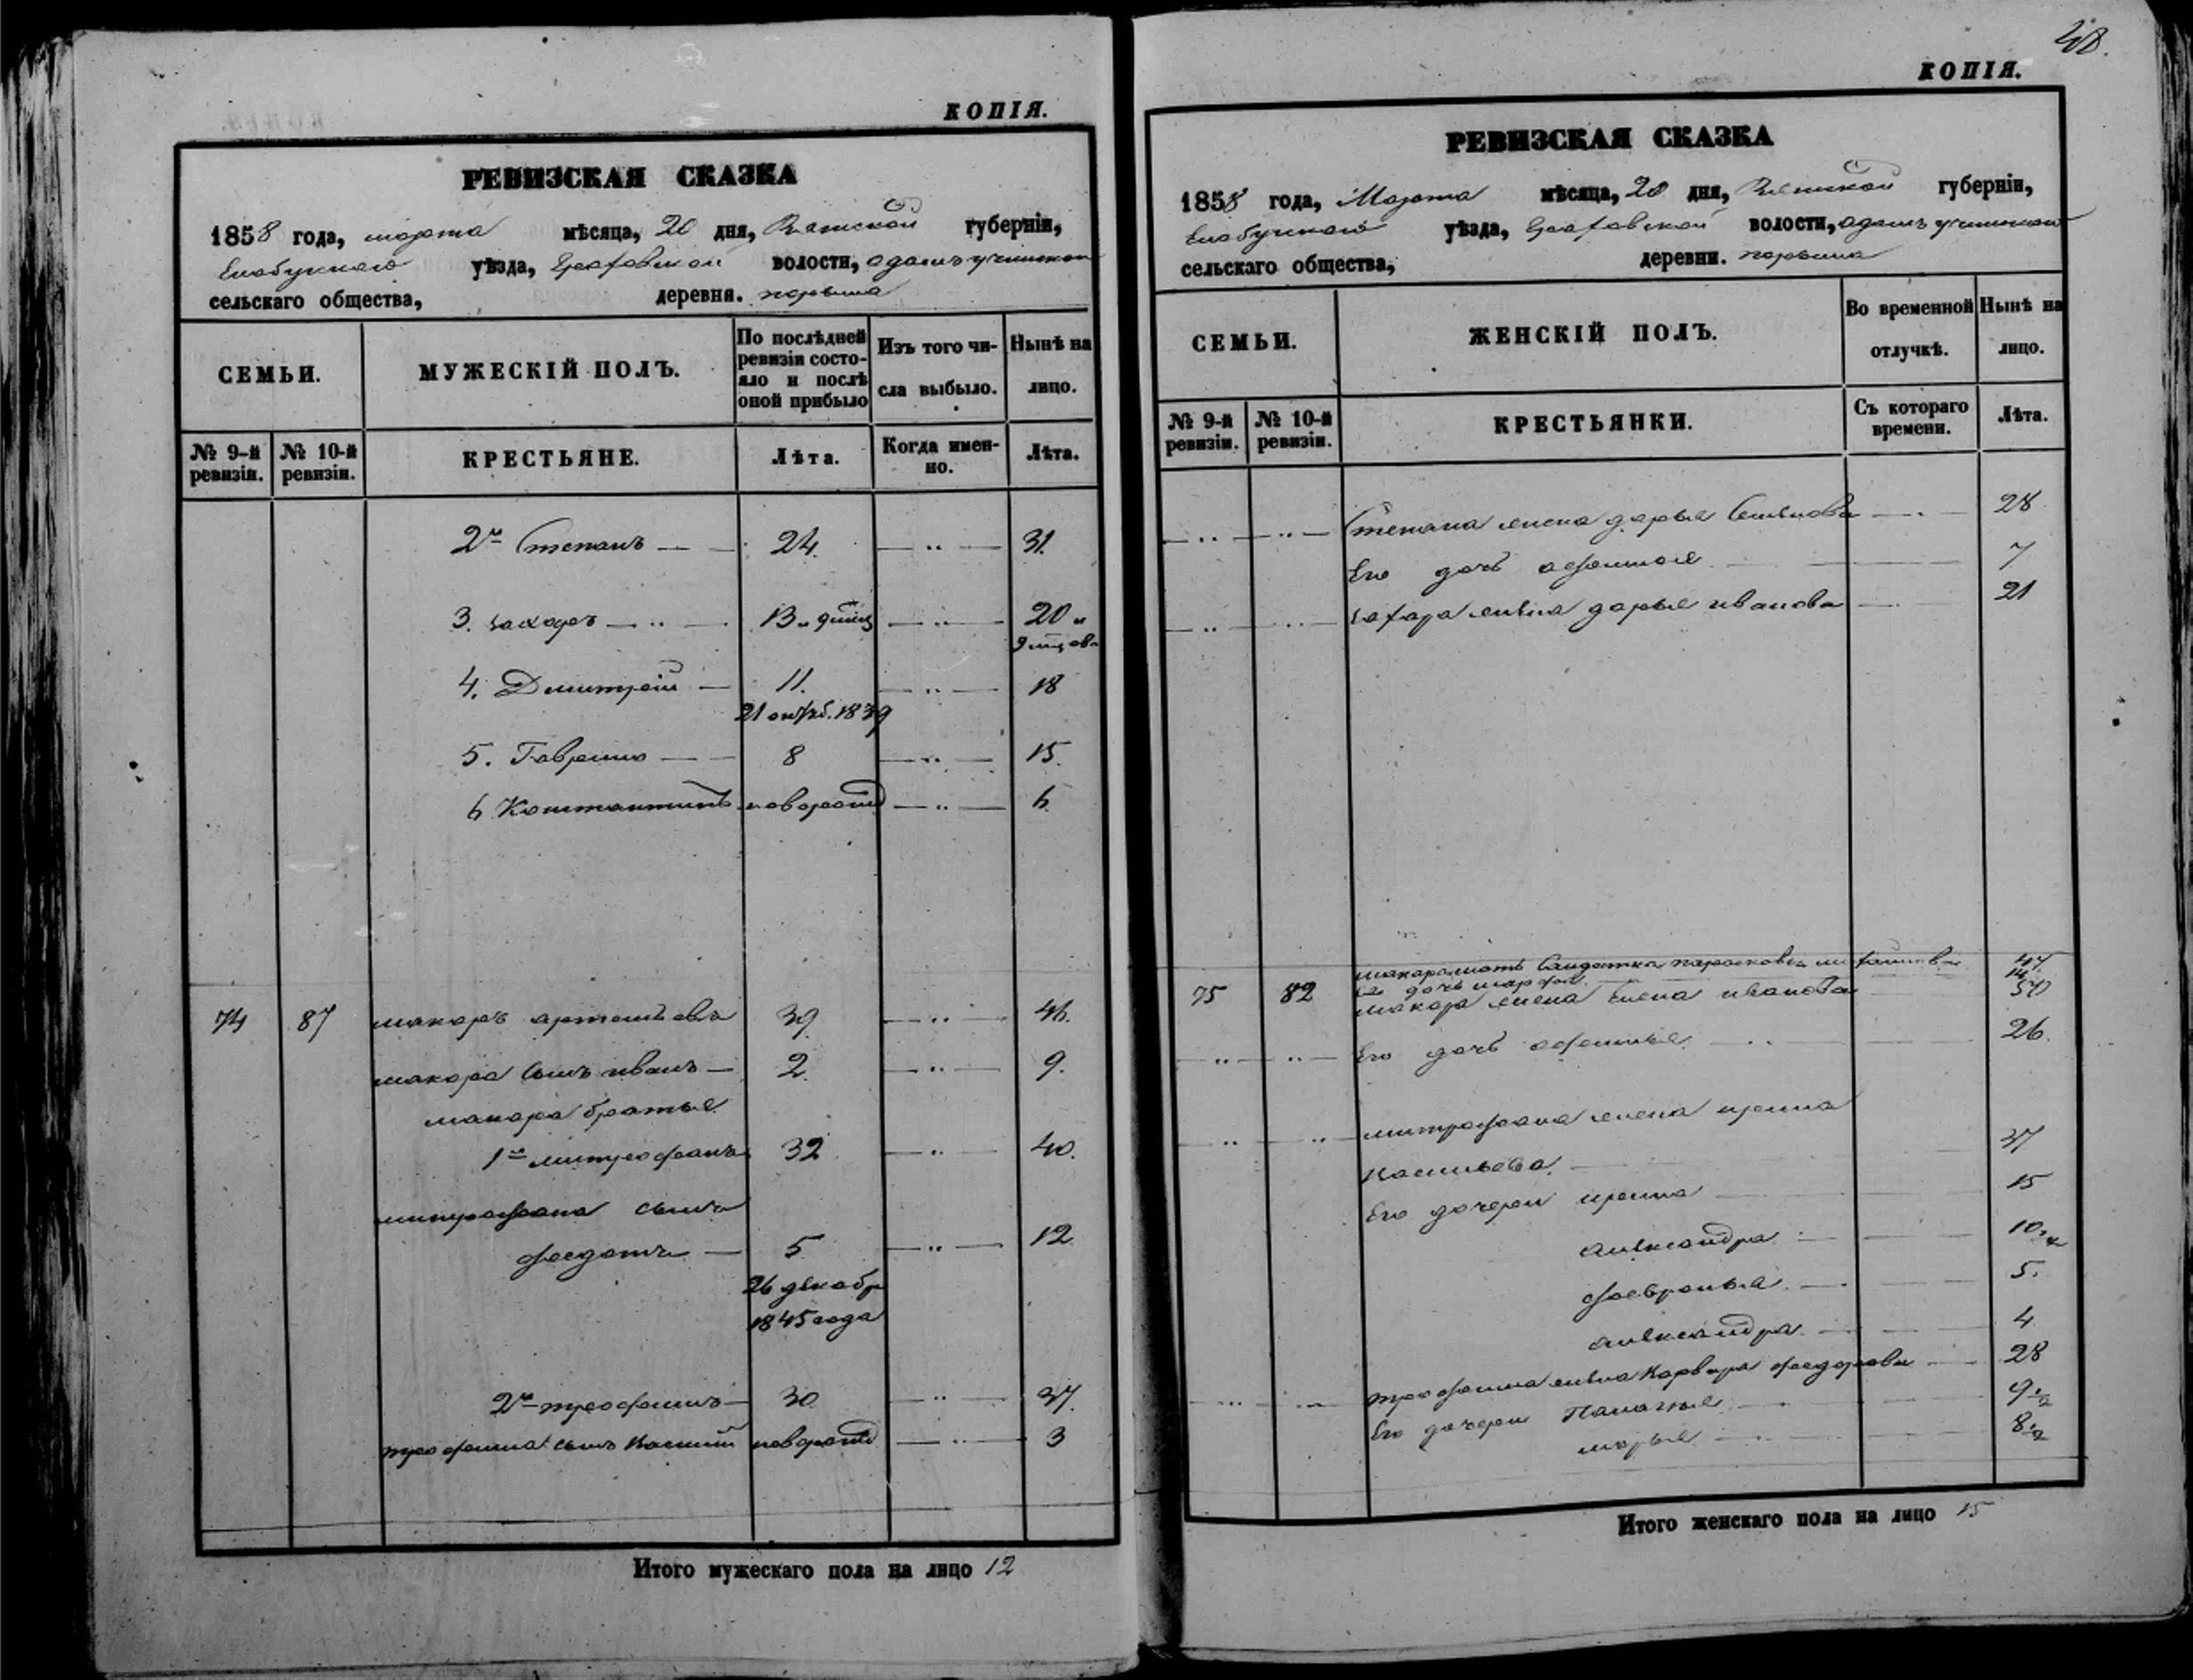 48.
КОПІЯ.
РЕВИЗСКАЯ СКАЗКА
1858 года, марта мѣсяца, 20 дня, Вятской губерніи,
Елабужскаго уѣзда, Граховской волости,
сельскаго общества, деревни.
СЕМЬИ.
МУЖЕСКІЙ ПОЛЪ.
По послѣдней ревизіи состояло и послѣ оной прибыло
Изъ того числа выбыло.
Нынѣ на лицо.
№ 9-й ревизіи.
№ 10-й ревизіи.
КРЕСТЬЯНЕ.
Лѣта.
Когда именно.
Лѣта.
2й Степанъ 24. 31.
3. Захаръ 13 20 и
4. Дмитрій 11. 18
21 октяб. 1839
5. Гаврило 8 15.
6 Константинъ новорожд 6.
74 87 макаръ артемьевъ 39. 46.
макара сынъ иванъ 2. 9.
макара братья
1й митрофанъ 32 40.
митрофана сынъ
федотъ 5 12.
26 декабр
1845 года
2й трофимъ 30 37.
трофима сынъ новорожд 3
Итого мужескаго пола на лицо 12
КОПІЯ.
РЕВИЗСКАЯ СКАЗКА
1858 года, Марта мѣсяца, 20 дня, Вятской губерніи,
Елабужскаго уѣзда, Граховской волости,
сельскаго общества, деревни.
СЕМЬИ.
ЖЕНСКІЙ ПОЛЪ.
Во временной отлучкѣ.
Нынѣ на лицо.
№ 9-й ревизіи.
№ 10-й ревизіи.
КРЕСТЬЯНКИ.
Съ котораго времени.
Лѣта.
Степана жена дарья Семенова 28
Его дочь афимья 7
захара жена дарья иванова 21
макара мать Салдатка парасковья 
Ея дочь 14
75 82 макара жена елена иванова 50
Его дочь афимья 26.
митрофана жена ирина
Васильева. 37
Его дочери ирина 15
александра 10
февронья 5.
александра 4
трофима жена Варвара федорова 28
Его дочери Палагея 9
марья 8
Итого женскаго пола на лицо 15